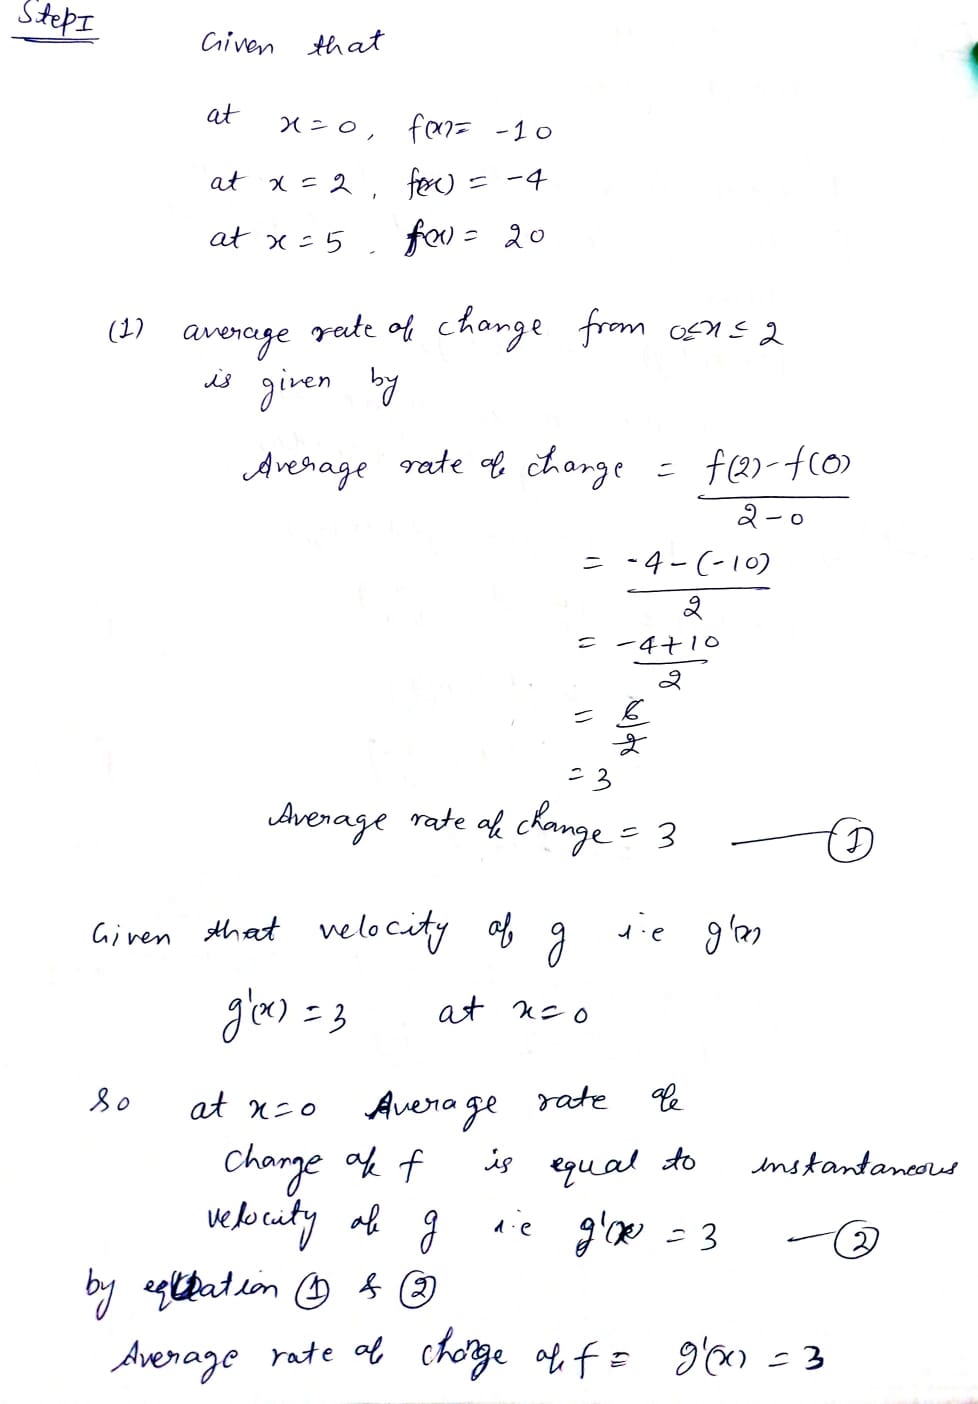 Step I
Given that
at x=0, f(x)= -10
at x=2, f(x) = -4
at x=5. f(x)= 20
(1) average rate of change from 0≤x≤2
is given by
Average rate of change = f(2)-f(0)
2-0
= -4-(-10)
2
= -4+10
2
= 6
2
= 3
Average rate of change = 3 — ①
Given that velocity of g i.e g'(x)
g'(x) = 3 at x=0
so at x=0 Average rate of
change of f is equal to instantaneous
velocity of g i.e g'(x) = 3 — ②
by equation ① & ②
Average rate of change of f = g'(x) = 3